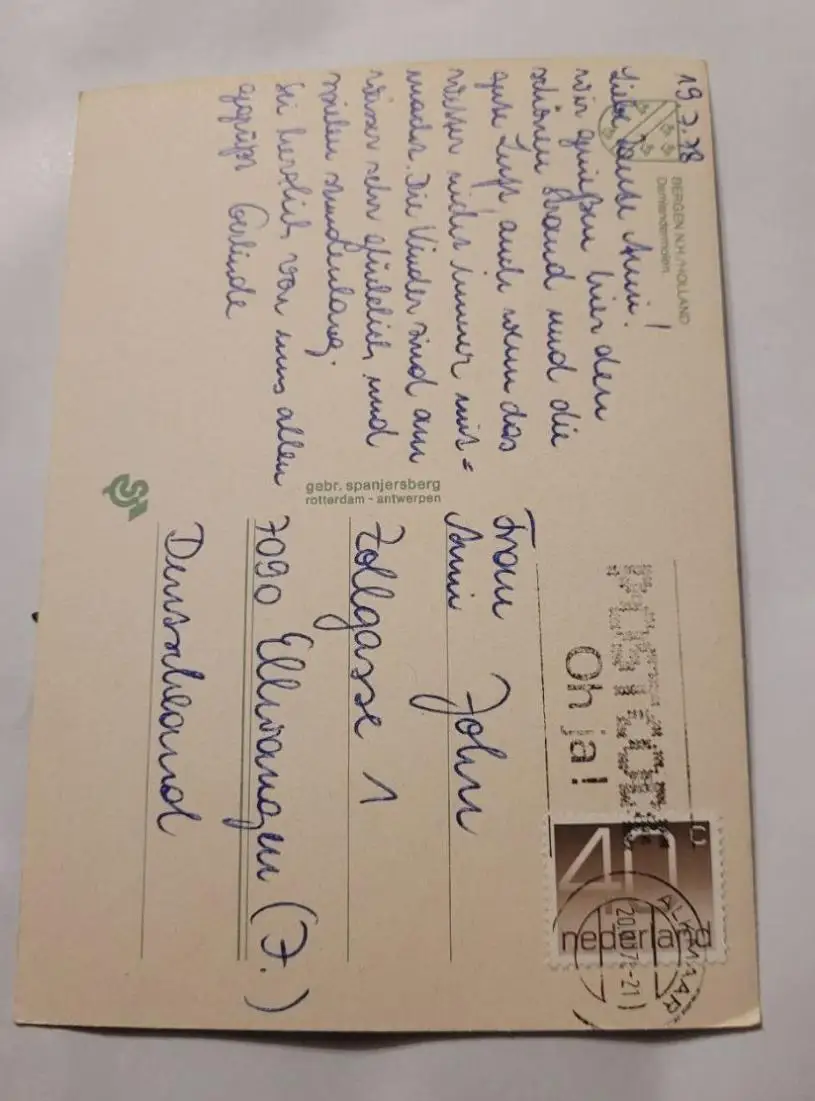 BERGEN N.H./HOLLAND
Damlandermolen
19.7.78
Liebe Tante Anni!
wir genießen hier den
schönen Strand und die
gute Luft, auch wenn das
Wetter nicht immer mit=
macht. Die Kinder sind am
Wasser sehr glücklich und
spielen stundenlang.
Sei herzlich von uns allen
gegrüßt Gerlinde
gebr. spanjersberg
rotterdam - antwerpen
POSTCODE
Oh ja!
40 c
nederland
ALKMAAR
Frau
Anni John
Zollgasse 1
7090 Ellwangen (J.)
Deutschland